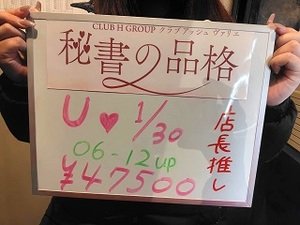 CLUB H GROUP クラブアッシュ ヴァリエ
秘書の品格
U♥ 1/30
店長推し
06-12up
¥47500